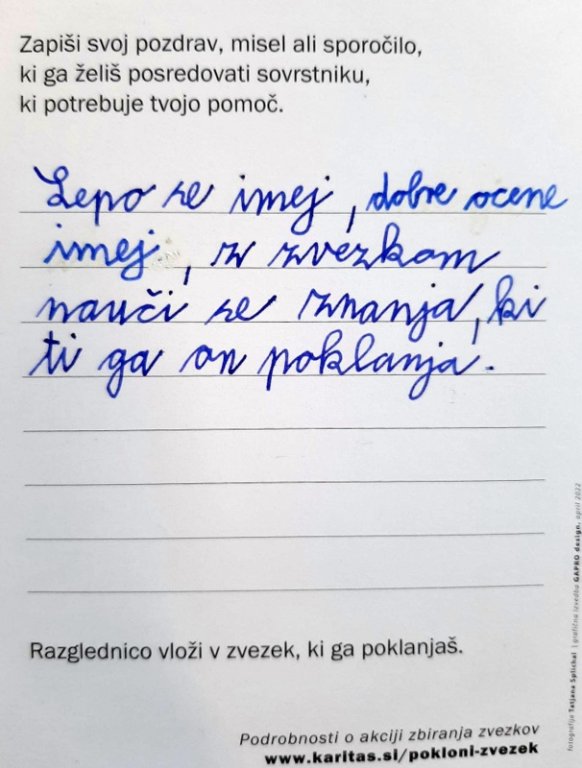 Zapiši svoj pozdrav, misel ali sporočilo,
ki ga želiš posredovati sovrstniku,
ki potrebuje tvojo pomoč.
Lepo se imej, dobre ocene
imej, z zvezkom
nauči se znanja, ki
ti ga on poklanja.
Razglednico vloži v zvezek, ki ga poklanjaš.
Podrobnosti o akciji zbiranja zvezkov
www.karitas.si/pokloni-zvezek
fotografija Tatjana Splichal | grafična izvedba GAPRO design, april 2022